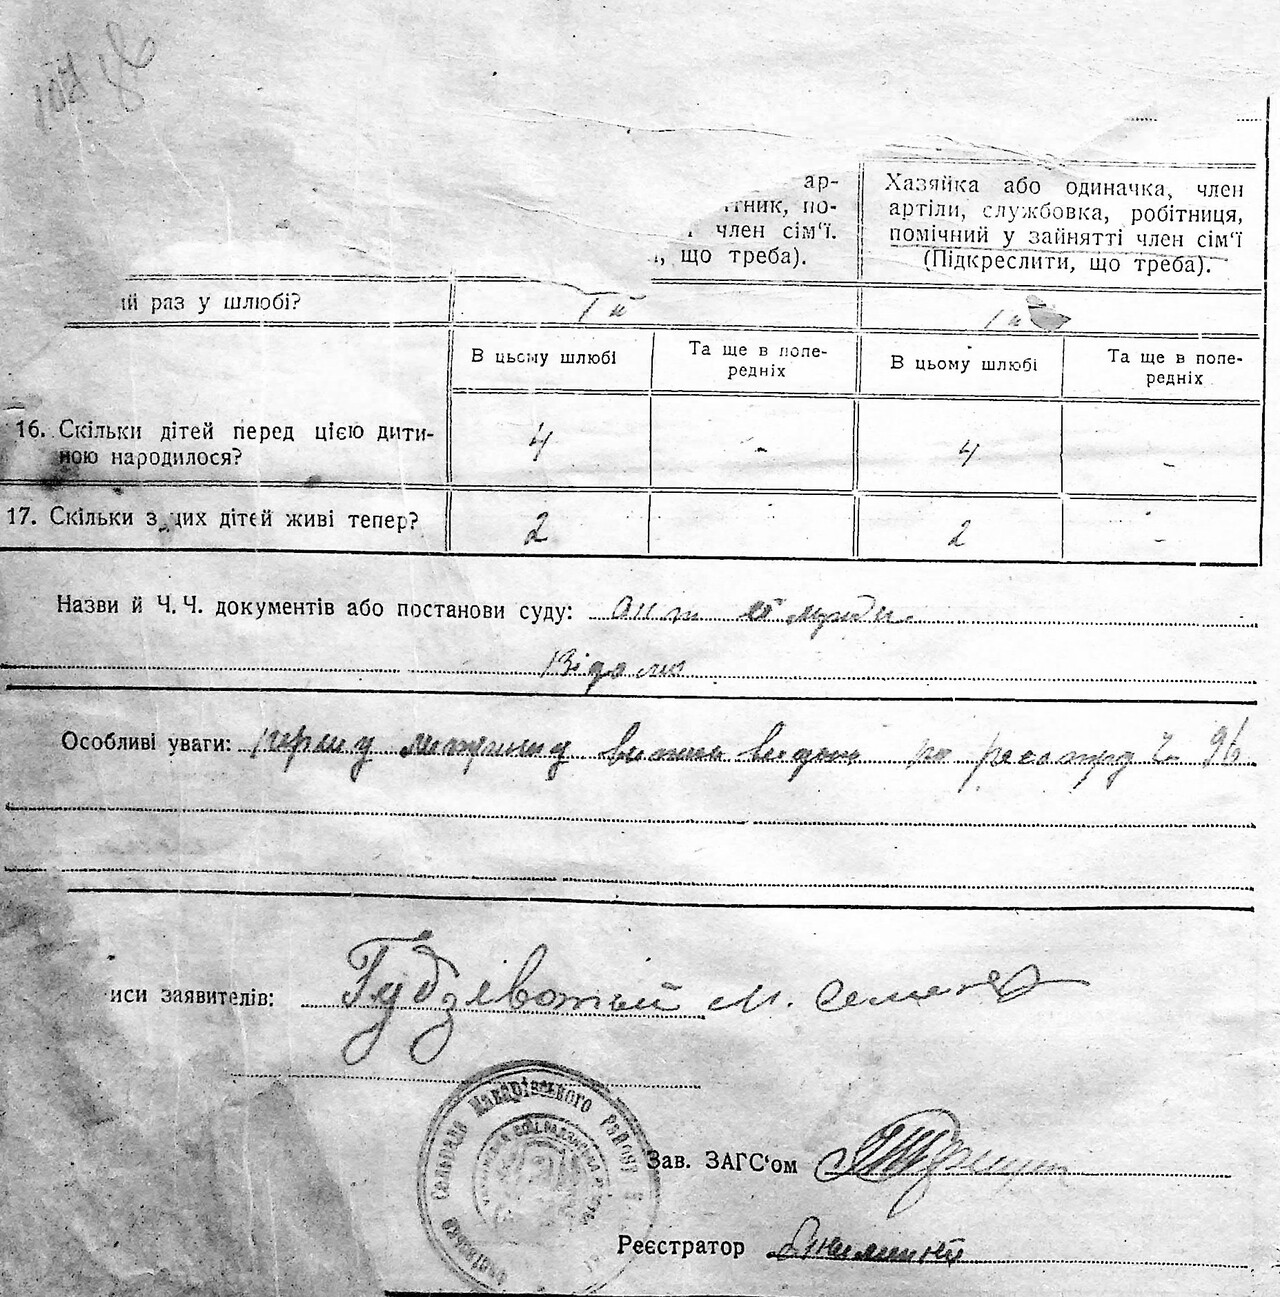 107 86
ар-
ітник, по-
член сім'ї.
, що треба).
Хазяйка або одиначка, член
артіли, службовка, робітниця,
помічний у зайнятті член сім'ї
(Підкреслити, що треба).
ий раз у шлюбі?
1й
1й
В цьому шлюбі
Та ще в попе-
редніх
В цьому шлюбі
Та ще в попе-
редніх
16. Скільки дітей перед цією дити-
ною народилося?
4
-
4
-
17. Скільки з цих дітей живі тепер?
2
-
2
-
Назви й Ч. Ч. документів або постанови суду:
Відомо
Особливі уваги: видан по реєстру Ч 96
иси заявителів: Гудзівотий М. Семен
Сельрада Макарівського Району
Зав. ЗАГС'ом
Реєстратор